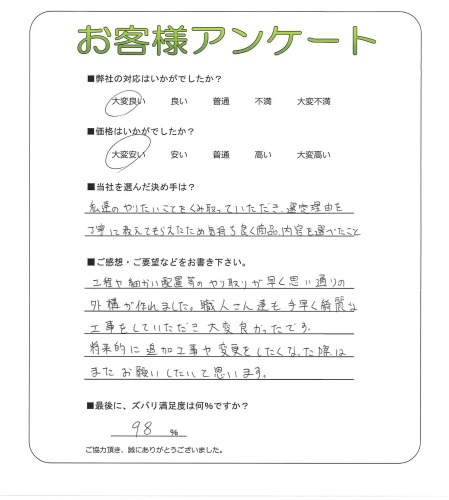 お客様アンケート
■弊社の対応はいかがでしたか？
大変良い 良い 普通 不満 大変不満
■価格はいかがでしたか？
大変安い 安い 普通 高い 大変高い
■当社を選んだ決め手は？
私達のやりたいことをくみ取っていただき、選定理由を
丁寧に教えてもらえたため気持ち良く商品、内容を選べたこと
■ご感想・ご要望などをお書き下さい。
工程や細かい配置等のやり取りが早く思い通りの
外構が作れました。職人さん達も手早く綺麗な
工事をしていただき大変良かったです。
将来的に追加工事や変更をしたくなった際は
またお願いしたいと思います。
■最後に、ズバリ満足度は何％ですか？
98 ％
ご協力頂き、誠にありがとうございました。